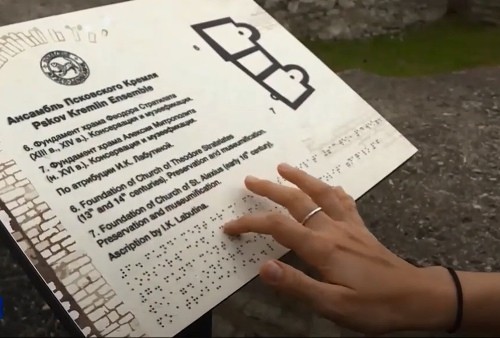 Ансамбль Псковского Кремля
Pskov Kremlin Ensemble
6. Фундамент храма Феодора Стратилата
(XIII в., XIV в.). Консервация и музеификация.
7. Фундамент храма Алексия Митрополита
(н. XVI в.). Консервация и музеификация.
По атрибуции И.К. Лабутиной.
6. Foundation of Church of Theodore Stratelates
(13th and 14th centuries). Preservation and museumification.
7. Foundation of Church of St. Alexius (early 16th century).
Preservation and museumification.
Ascription by I.K. Labutina.
7